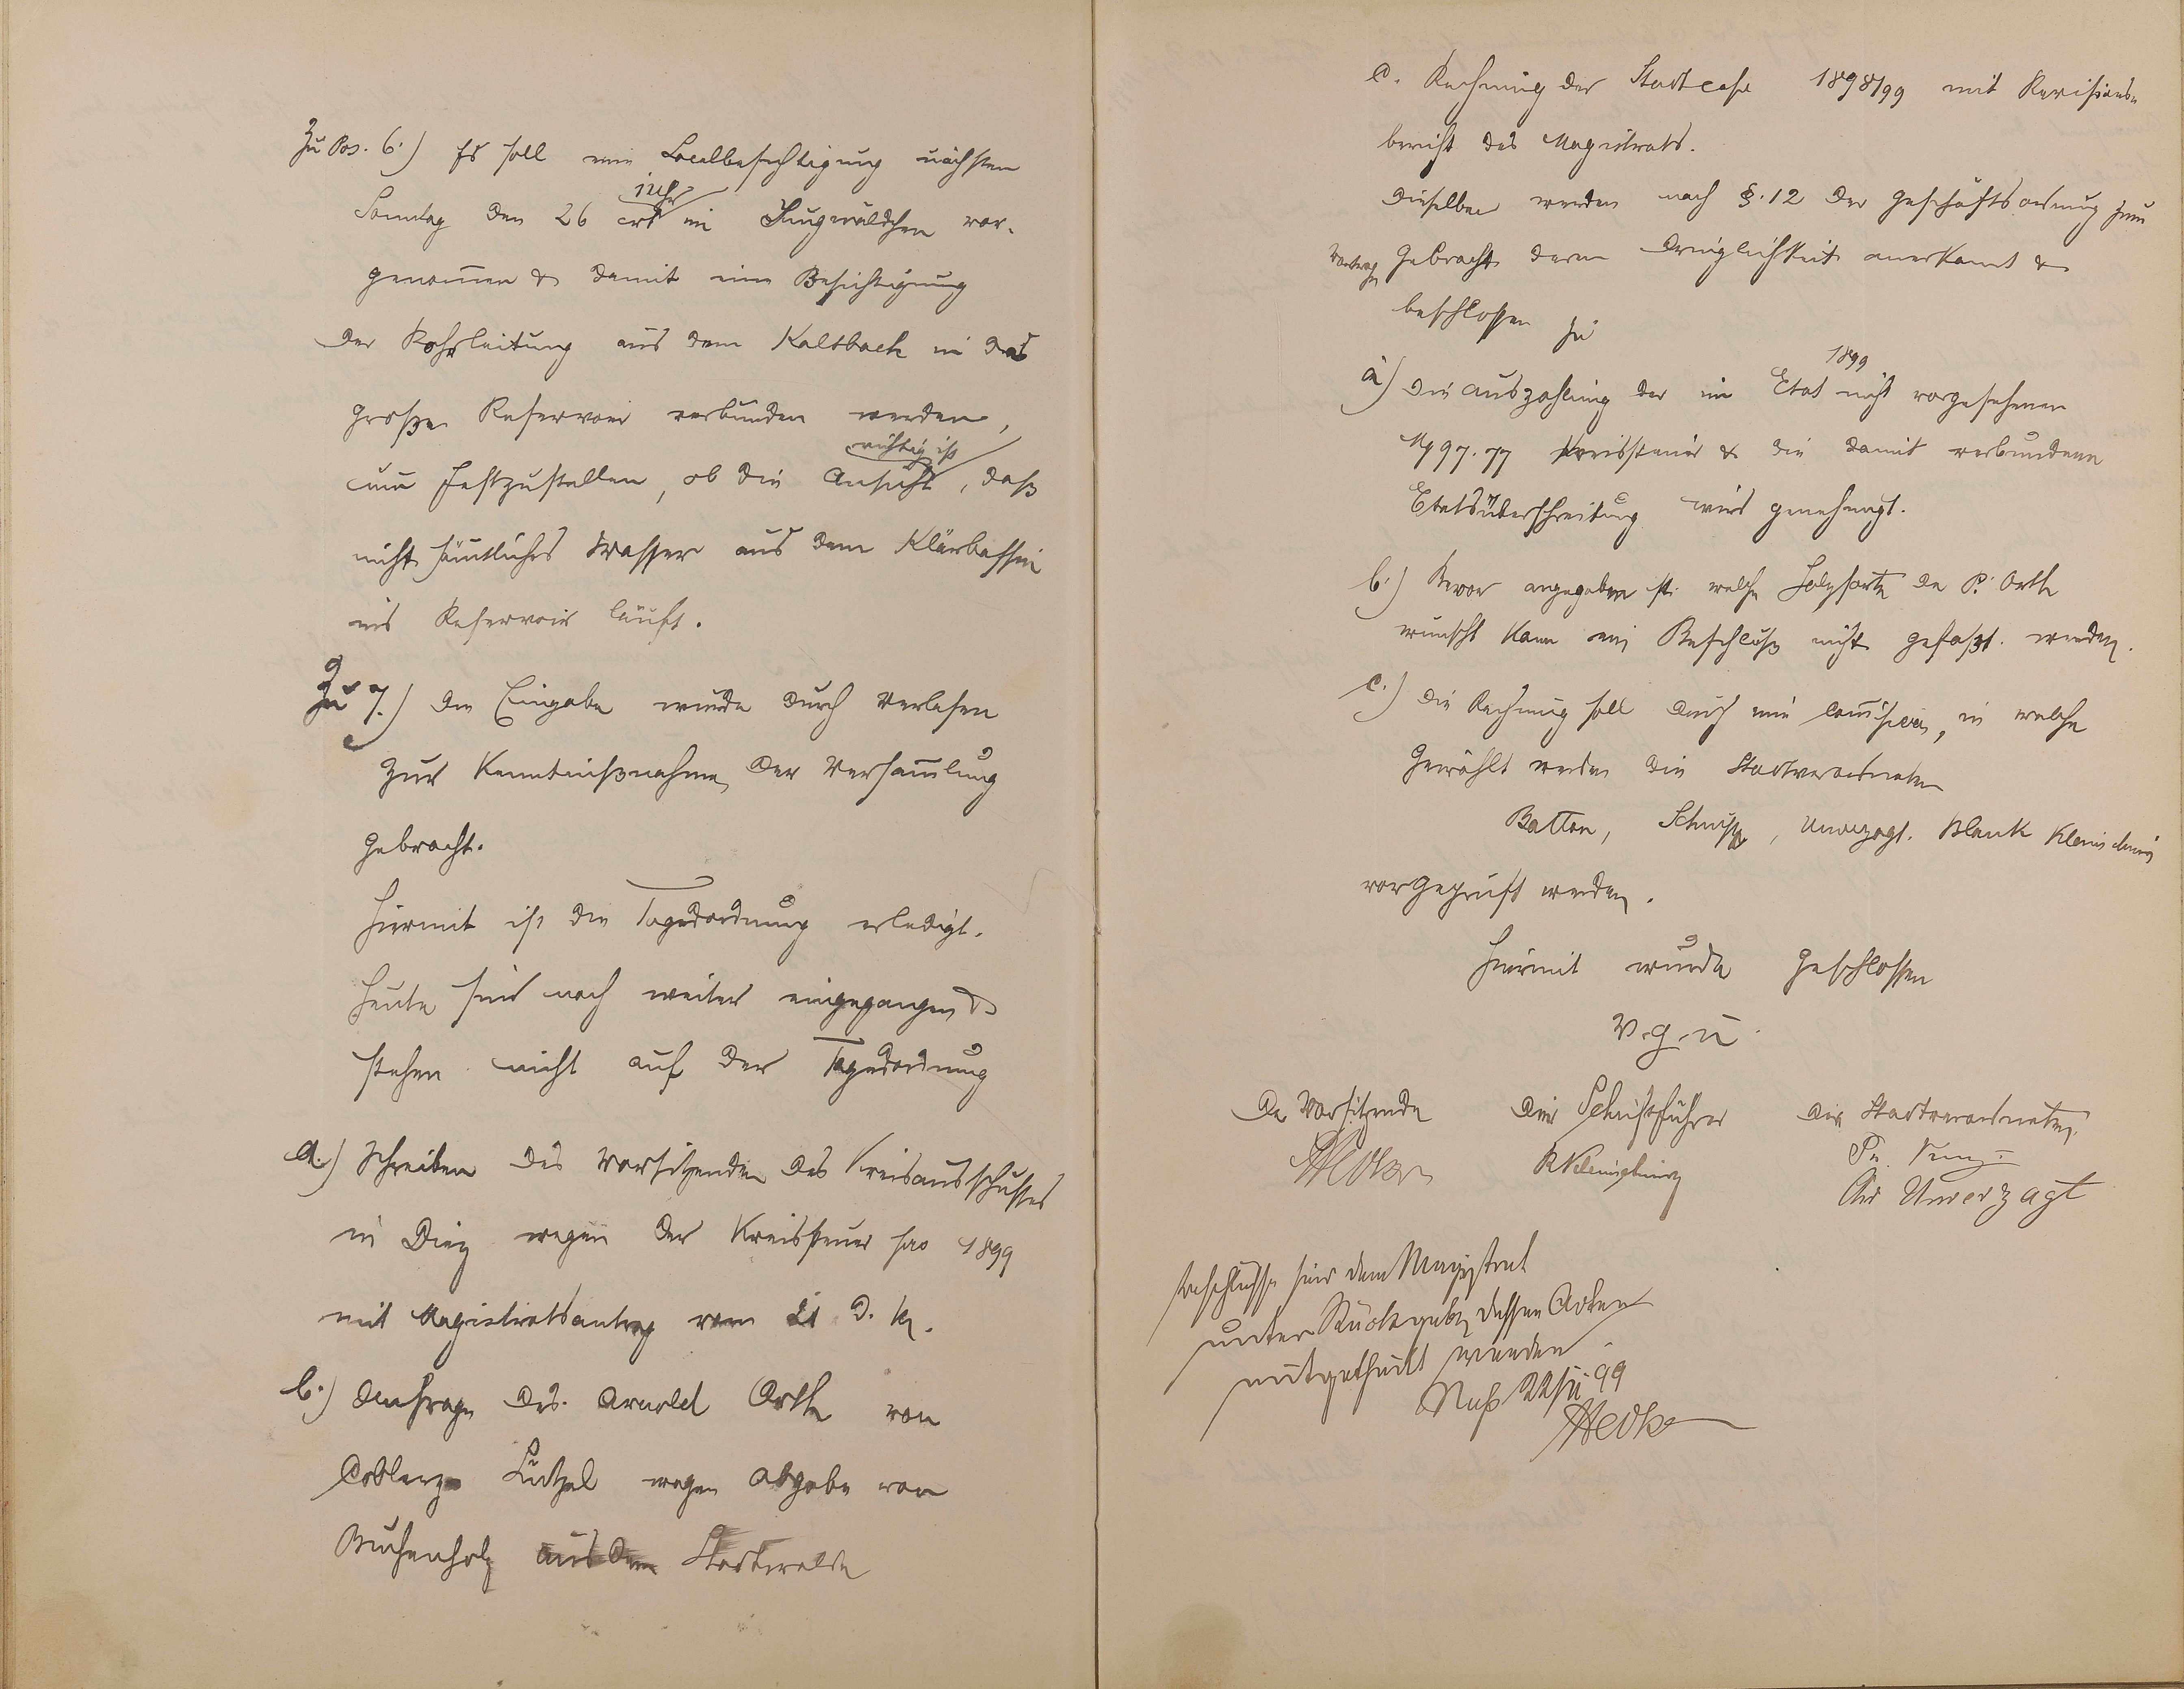 Zu Pos. 6.) Es soll eine Localbesichtigung nächsten
Sonntag den 26 crt 1 Uhr im Jungwäldchen vor-
genom̄en & damit eine Besichtigung
der Rohrleitung aus dem Kaltbach in das
große Reservoir verbunden werden,
um festzustellen, ob die Ansicht richtig ist, daß
nicht säm̄tliches Wasser aus dem Klärbassin
ins Reservoir läuft.
Zu 7.) Die Eingabe wurde durch Verlesen
zur Kenntnißnahme der Versam̄lung
gebracht.
Hiermit ist die Tagesordnung erledigt.
Heute sind noch weiter eingegangen &
stehen nicht auf der Tagesordnung
a.) Schreiben des Vorsitzenden des Kreisausschusses
in Diez wegen der Kreissteuer pro 1899
mit Magistratsantrag vom 21 d. M.
b.) Anfrage des Arnold Orth von
Coblenz Lützel wegen Abgabe von
Buchenholz aus dem Stadtwalde
c. Rechnung der Stadtcasse 1898/99 mit Revisions-
bericht des Magistrats.
Dieselben werden nach §. 12 der Geschäftsordnung zum
Vortrage gebracht deren Dringlichkeit anerkannt &
beschlossen zu
a) Die Auszahlung der im Etat 1899 nicht vorgesehenen
M 97.77 Kreissteuer & die damit verbundene
Etatsüberschreitung wird genehmigt.
b.) Bevor angegeben ist welche Holzsorte der P. Orth
wünscht kann ein Beschluß nicht gefaßt werden.
c.) Die Rechnung soll durch eine Com̄ission, in welche
gewählt werden die Stadtverordneten
Batton, Unverzagt. Blank
vorgeprüft werden.
Hiermit wurde geschlossen
V. g. u.
Der Vorsitzende Der Schriftführer Die Stadtverordneten
Unverzagt
Beschlüsse sind dem Magistrat
unter Rückgabe dessen Acten
mitgetheilt worden
22/11 99